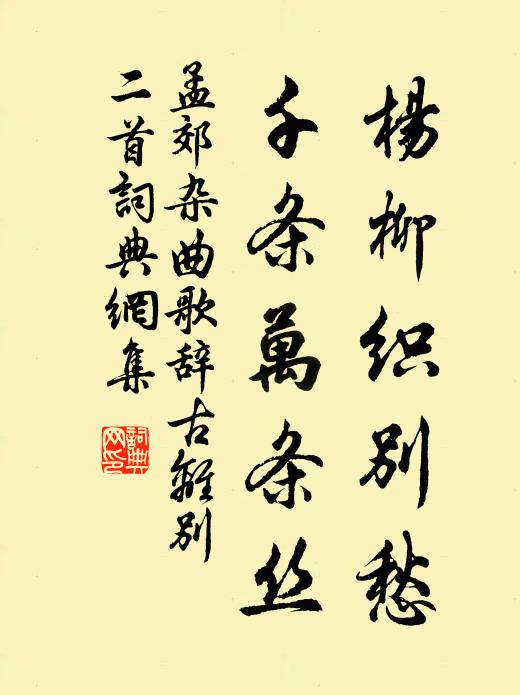 楊柳织别愁
千条萬条丝
孟郊杂曲歌辞古離别
二首詞典網集
詞典
网印